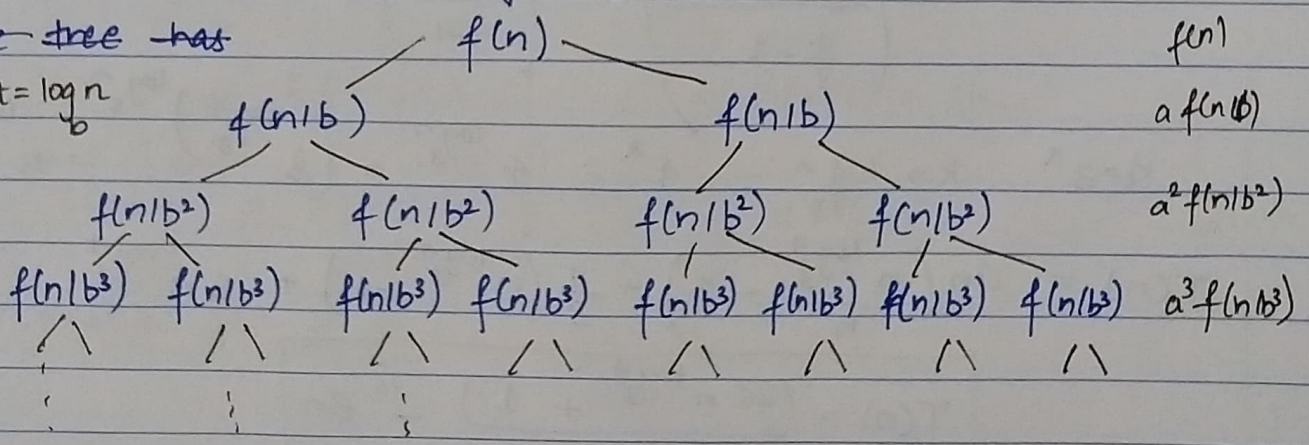 tree has f(n) f(n)
t = log n
b
f(n/b) f(n/b) a f(n/b)
f(n/b²) f(n/b²) f(n/b²) f(n/b²) a² f(n/b²)
f(n/b³) f(n/b³) f(n/b³) f(n/b³) f(n/b³) f(n/b³) f(n/b³) f(n/b³) a³ f(n/b³)